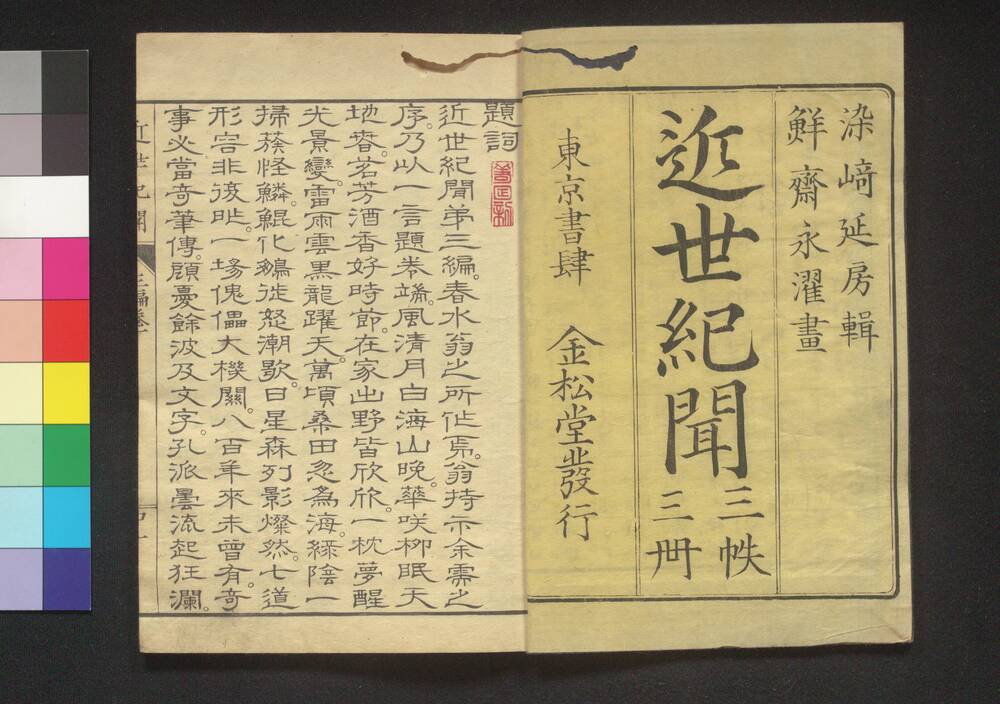 染﨑延房輯
鮮齋永濯畫
近世紀聞
三帙
三冊
東京書肆 金松堂發行
題詞
近世紀聞弟三編。春水翁之所作焉。翁持示余需之
序。乃以一言題卷端。風清月白海山晚。華咲柳眠天
地春。茗芳酒香好時節。在家出野皆欣欣。一枕夢醒
光景變。雷雨雲黒龍躍天。萬頃桑田忽為海。綠陰一
掃蔟怪鱗。鱗鯤化鵾徙怒潮歇。日星森列影燦然。七道
形容非復昨。一場傀儡大機關。八百年來未曾有。奇
事必當奇筆傳。頋憂餘波及文字。孔派曇流起狂瀾。
近世紀聞
三編卷一